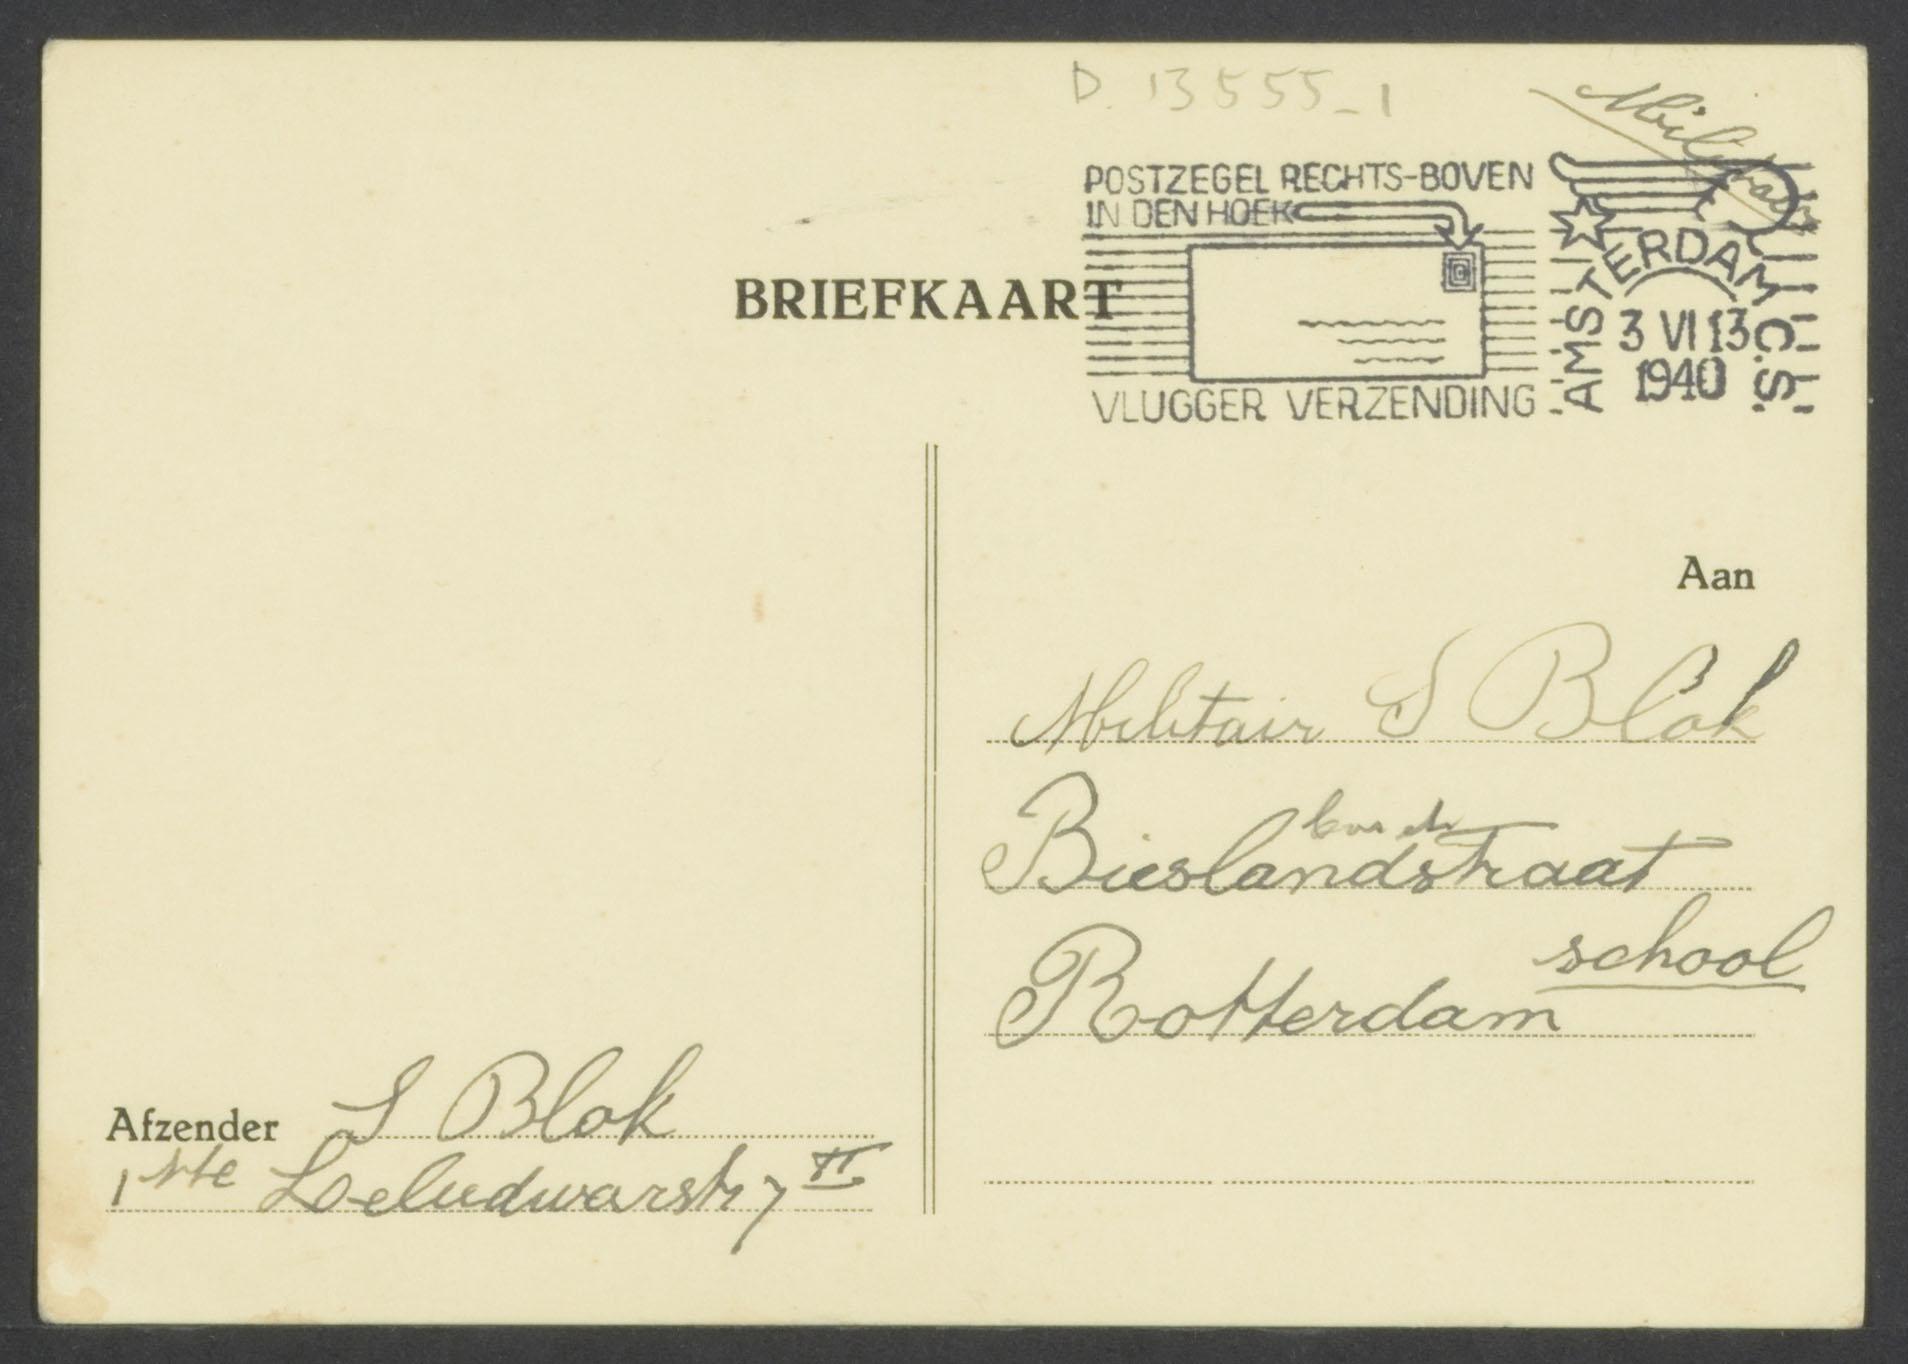 D. 13555-1
Militair
POSTZEGEL RECHTS-BOVEN
IN DEN HOEK
VLUGGER VERZENDING
AMSTERDAM C.S.
3 VI 13
1940
BRIEFKAART
Aan
Militair S Blok
Bieslandstraat
school
Rotterdam
Afzender S Blok
1ste 7 II